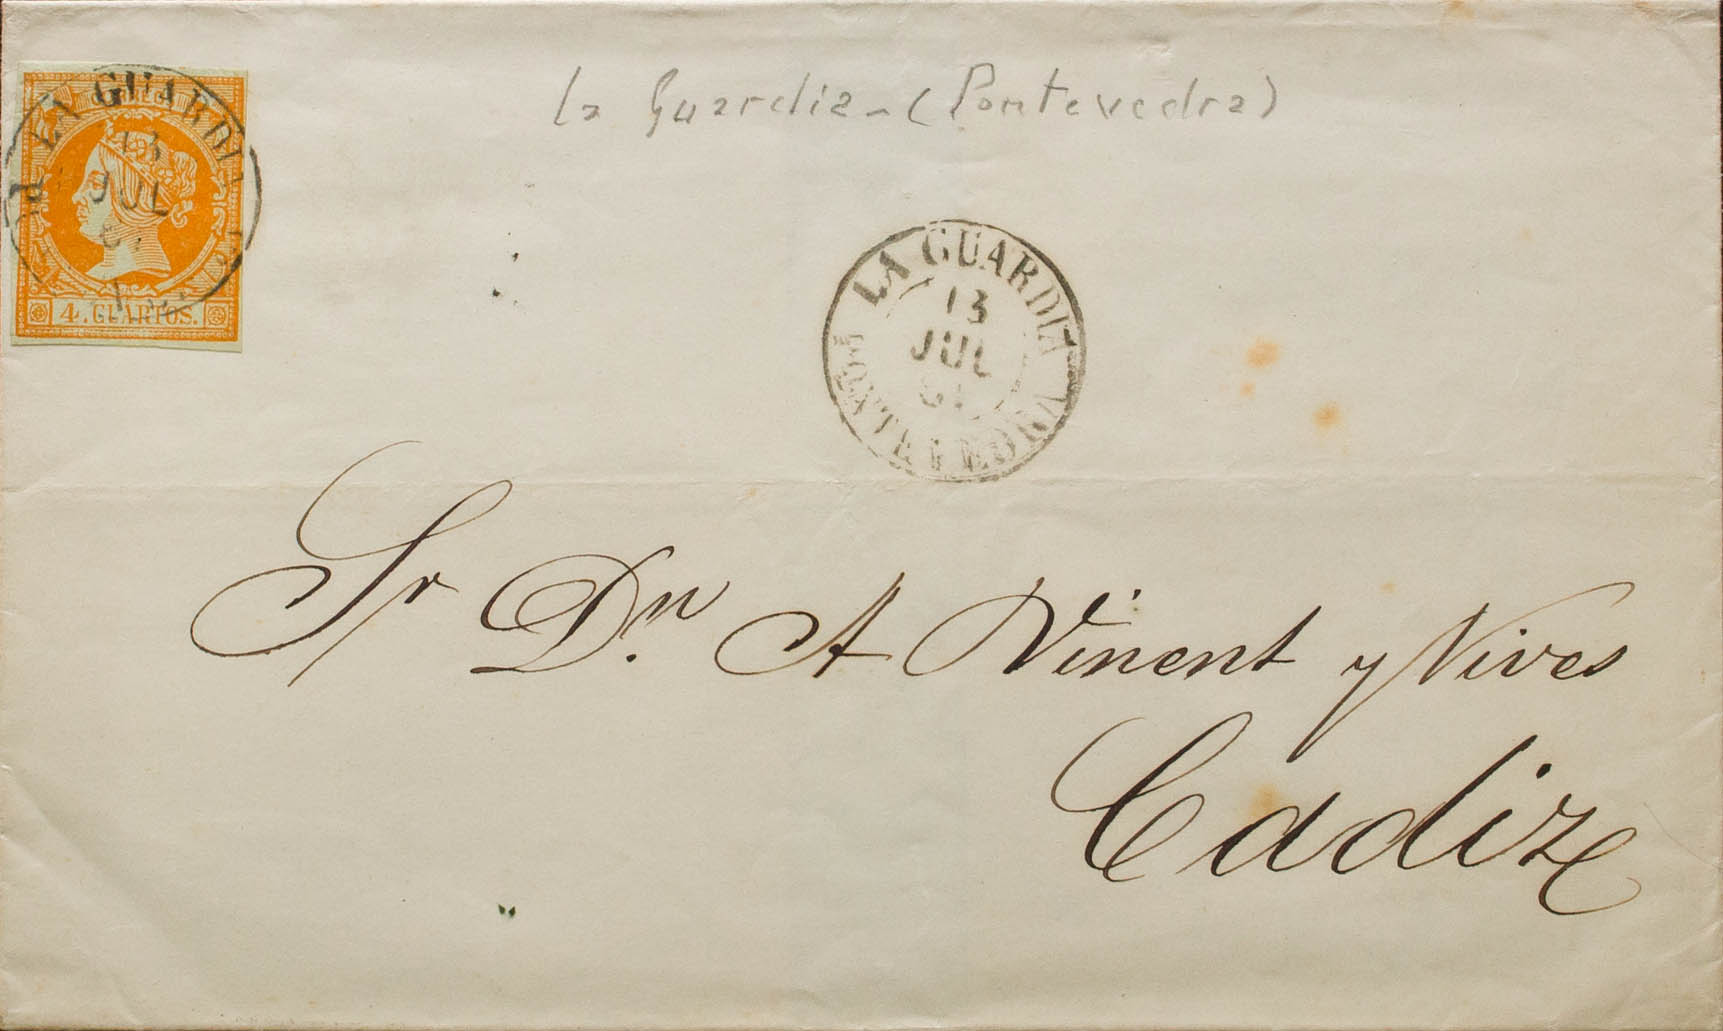 la Guardia - (Pontevedra)
LA GUARDIA
13
JUL
4. CUARTOS.
LA GUARDIA
13
JUL
61.
PONTEVEDRA
Sr Dn. A Vinent y Vives
Cadiz